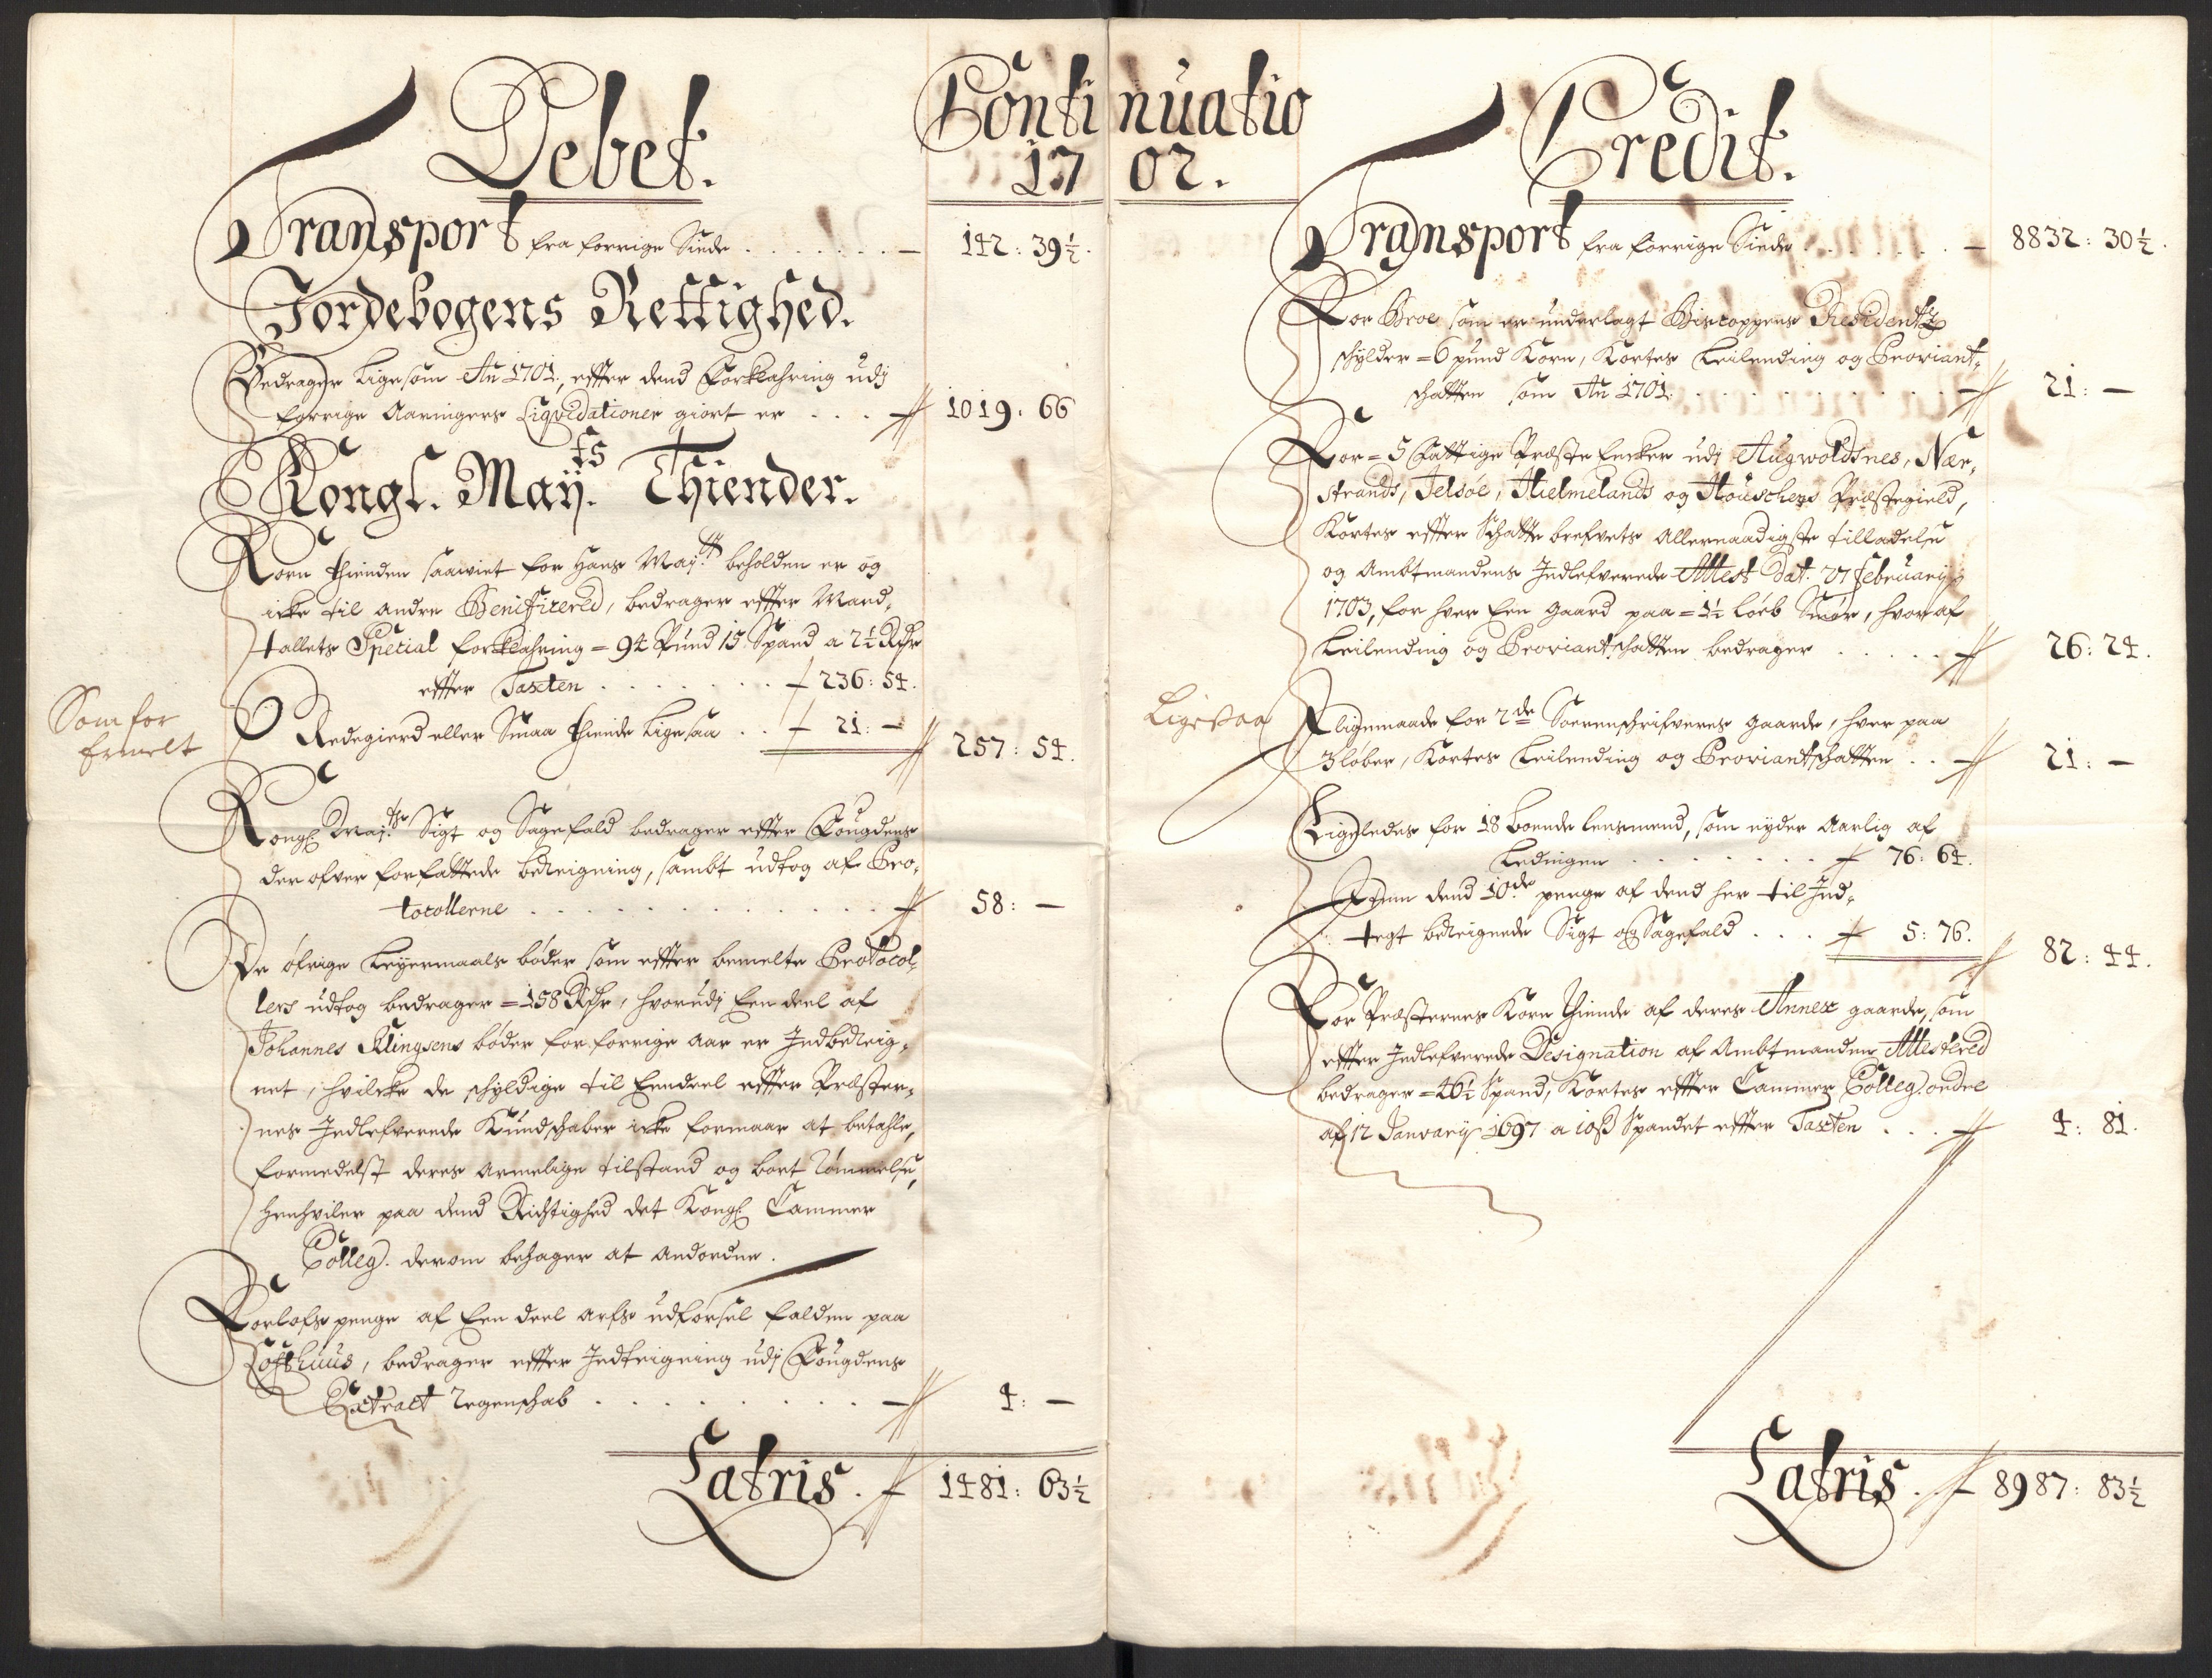 Continuatio
1702.
Debet.
Transport fra forrige Siide . . . . . . . — 142: 39½.
Jordebogens Rettighed.
Bedrager ligesom Ao 1701, effter dend Forklahring udj
forrige Aaringers Liqvidationer giort er . . . — 1019: 66
Kongl. Mayts. Thiender.
Korn thienden saawiit for Hans Maytt beholden er og
icke til andre Benificered, bedrager effter Mand-
tallets Special forklahring = 94 Pund 15 Spand a 2½ Rdr
effter Taxten . . . . . . . 236: 54.
Redegierd eller Smaa thiende ligesaa . . 21: — 257: 54.
Som for
Ermelt
Kongl Mayts Sigt og Sagefald bedrager effter Fougdens
der ofver forfattede beregning, sambt udtog af Pro-
tocollerne . . . . . . . . . . 58: —
De øfrige Leyermaals bøder som effter bemelte Protocol-
lers udtog bedrager = 158 Rdr, hvorudj Een deel af
Johannes Klingsens bøder for forrige Aar er Indbereig-
net, hvilcke de schyldige til Eendeel effter Præster-
nes Indlefverede Kundschaber icke formaar at betahle,
formedelst deres armelige tilstand og bort Rømmelse,
Henhviler paa dend Rictighed det Kongl Cammer
Colleg. derom behager at Anordne.
Forlofs penge af Een deel arfs udførsel falden paa
Lofthuus, bedrager effter Indteigning udj Fougdens
Extract Regenschab . . . . . . . . . — 4: —
Latris. 1481: 63½
Credit.
Transport fra forrige Siide . . . . . . — 8832: 30½.
For Broe som er underlagt Biscoppens Residentz
schylder = 6 pund Korn, Kortes Leilending og Proviant-
schatten som Ao 1701 . . . . . . . . . 21: —
For = 5 Fattige Præste Encker udj Augwoldsnes, Nær-
strands, Jelsøe, Hielmelands og Houschens Præstegield,
Kortes effter Schatte brefvets Allernaadigste tilladelse
og Ambtmandens Indlefverede Attest dat. 27 februarij
1703, for hver Een gaard paa = 1½ Løeb Smør, hvoraf
Leilending og Proviantschatten bedrager . . . . . 26: 24.
Ligesaa
I ligemaade for 2de Sorenschrifveres gaarde, hver paa
3 løber, Kortes Leilending og Proviantschatten . . — 21: —
Ligeledes for 18 boende lensmend, som nyder Aarlig af
Ledingen . . . . . . . 76: 64.
Item dend 10de penge af dend her til Ind-
tegt bereignede Sigt og Sagefald . . . 5: 76. 82: 44.
For Præsternes Korn Thiende af deres Annex gaarde, som
effter Indlefverede Designation af Ambtmanden Attestered
bedrager = 46½ Spand, Kortes effter Cammer Colleg. ordre
af 12 Januarij 1697 a 10 ß Spandet effter Taxten . . . 4: 81.
Latris. 8987: 83½